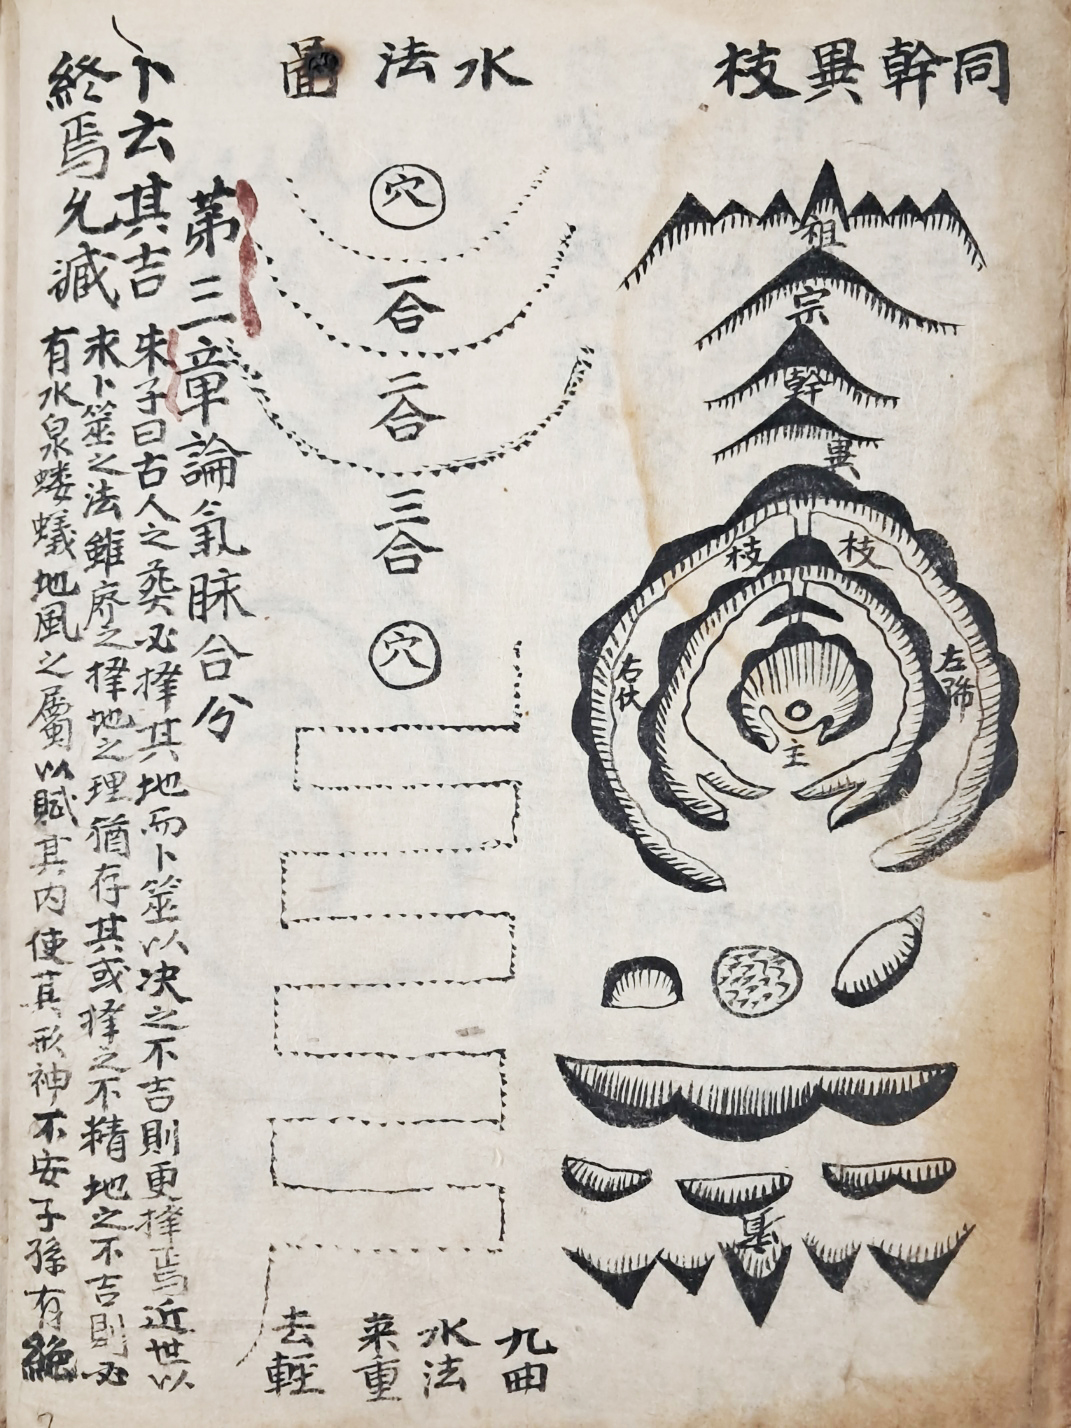 同幹異枝
祖
宗
幹
異
枝
枝
左
右伏
主
水法圖
穴
一合
二合
三合
穴
九曲
水法
来重
去輕
第三章論氣脉合分
卜云其吉
終焉允臧
朱子曰古人之葬必擇其地而卜筮以决之不吉則更擇焉近世以
来卜筮之法雖廢之擇地之理猶存其或擇之不精地之不吉則必
有水泉螻蟻地風之屬以賊其内使其形神不安子孫有絶